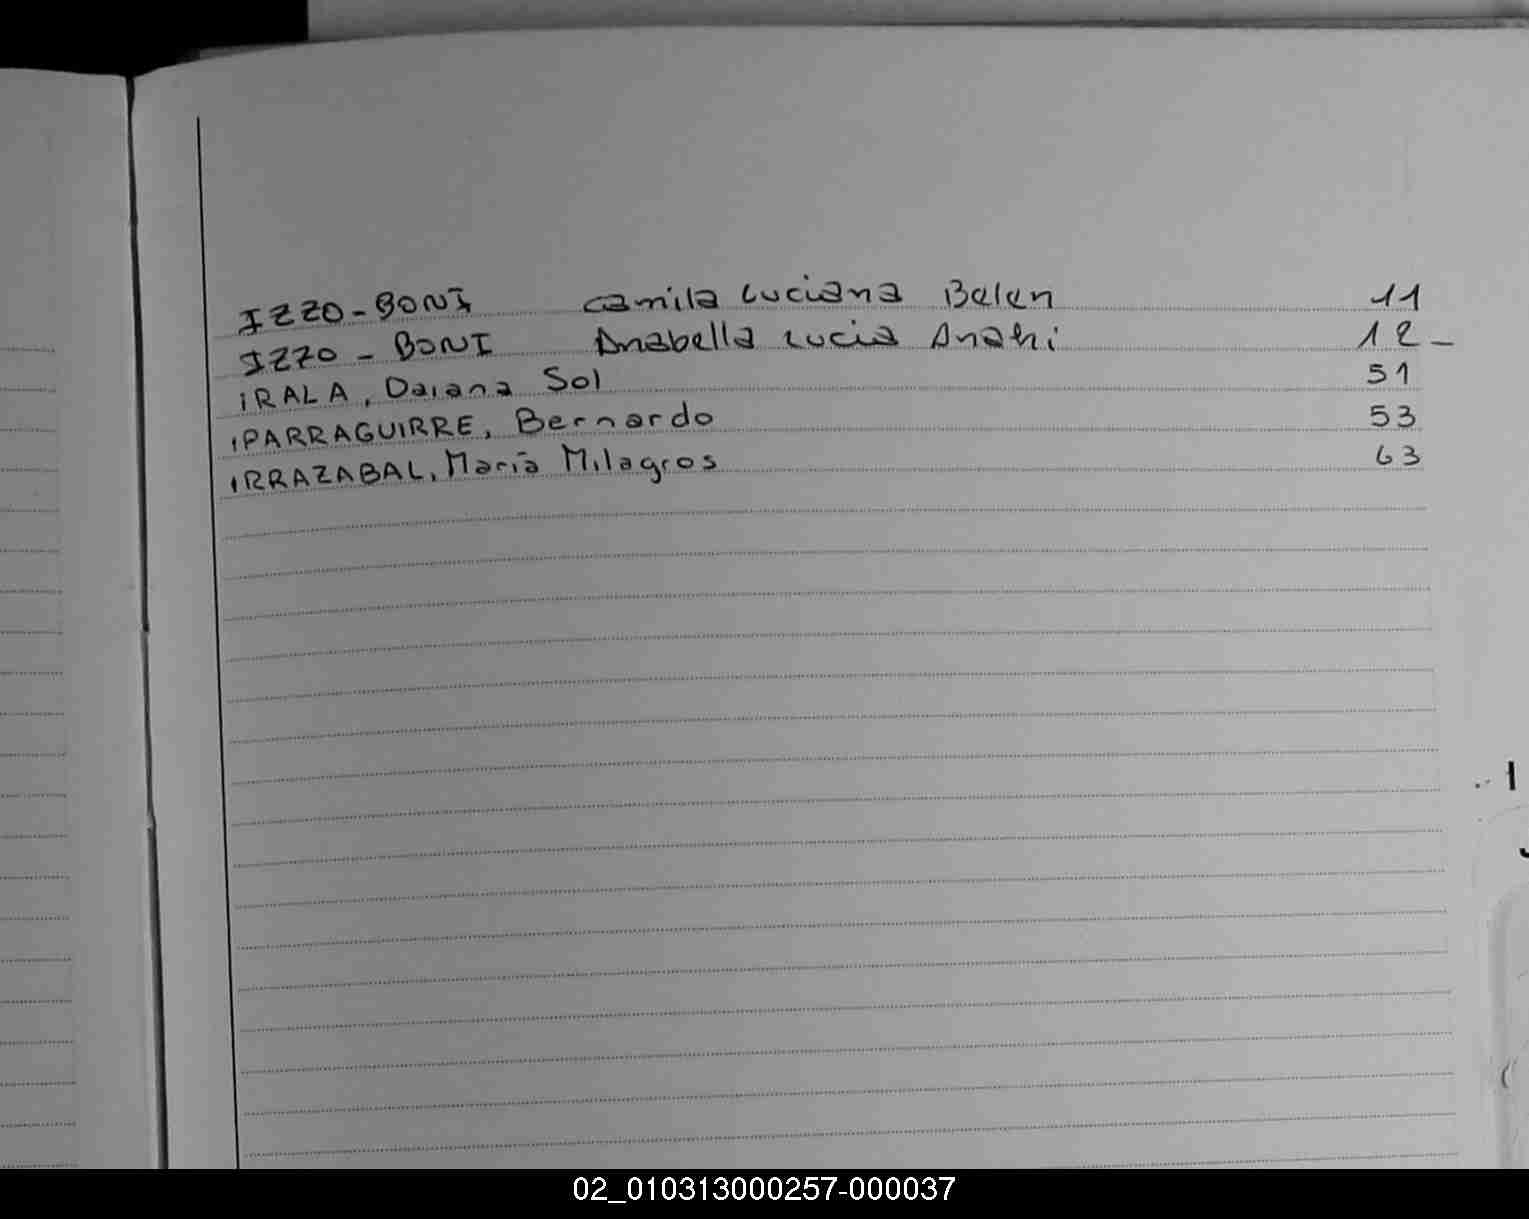 IZZO-BONI Camila Luciana Belen 11
IZZO - BONI Anabella Lucia Anahi 12 -
iRALA, Daiana Sol 51
iPARRAGUIRRE, Bernardo 53
iRRAZABAL, María Milagros 63
02_010313000257-000037